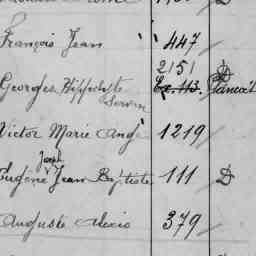 François Jean " 447
2151
Georges Hippolyte
Victor Marie Ange 1219
Joseph
Eugène Jean Baptiste 111 D
Auguste Alexis 379